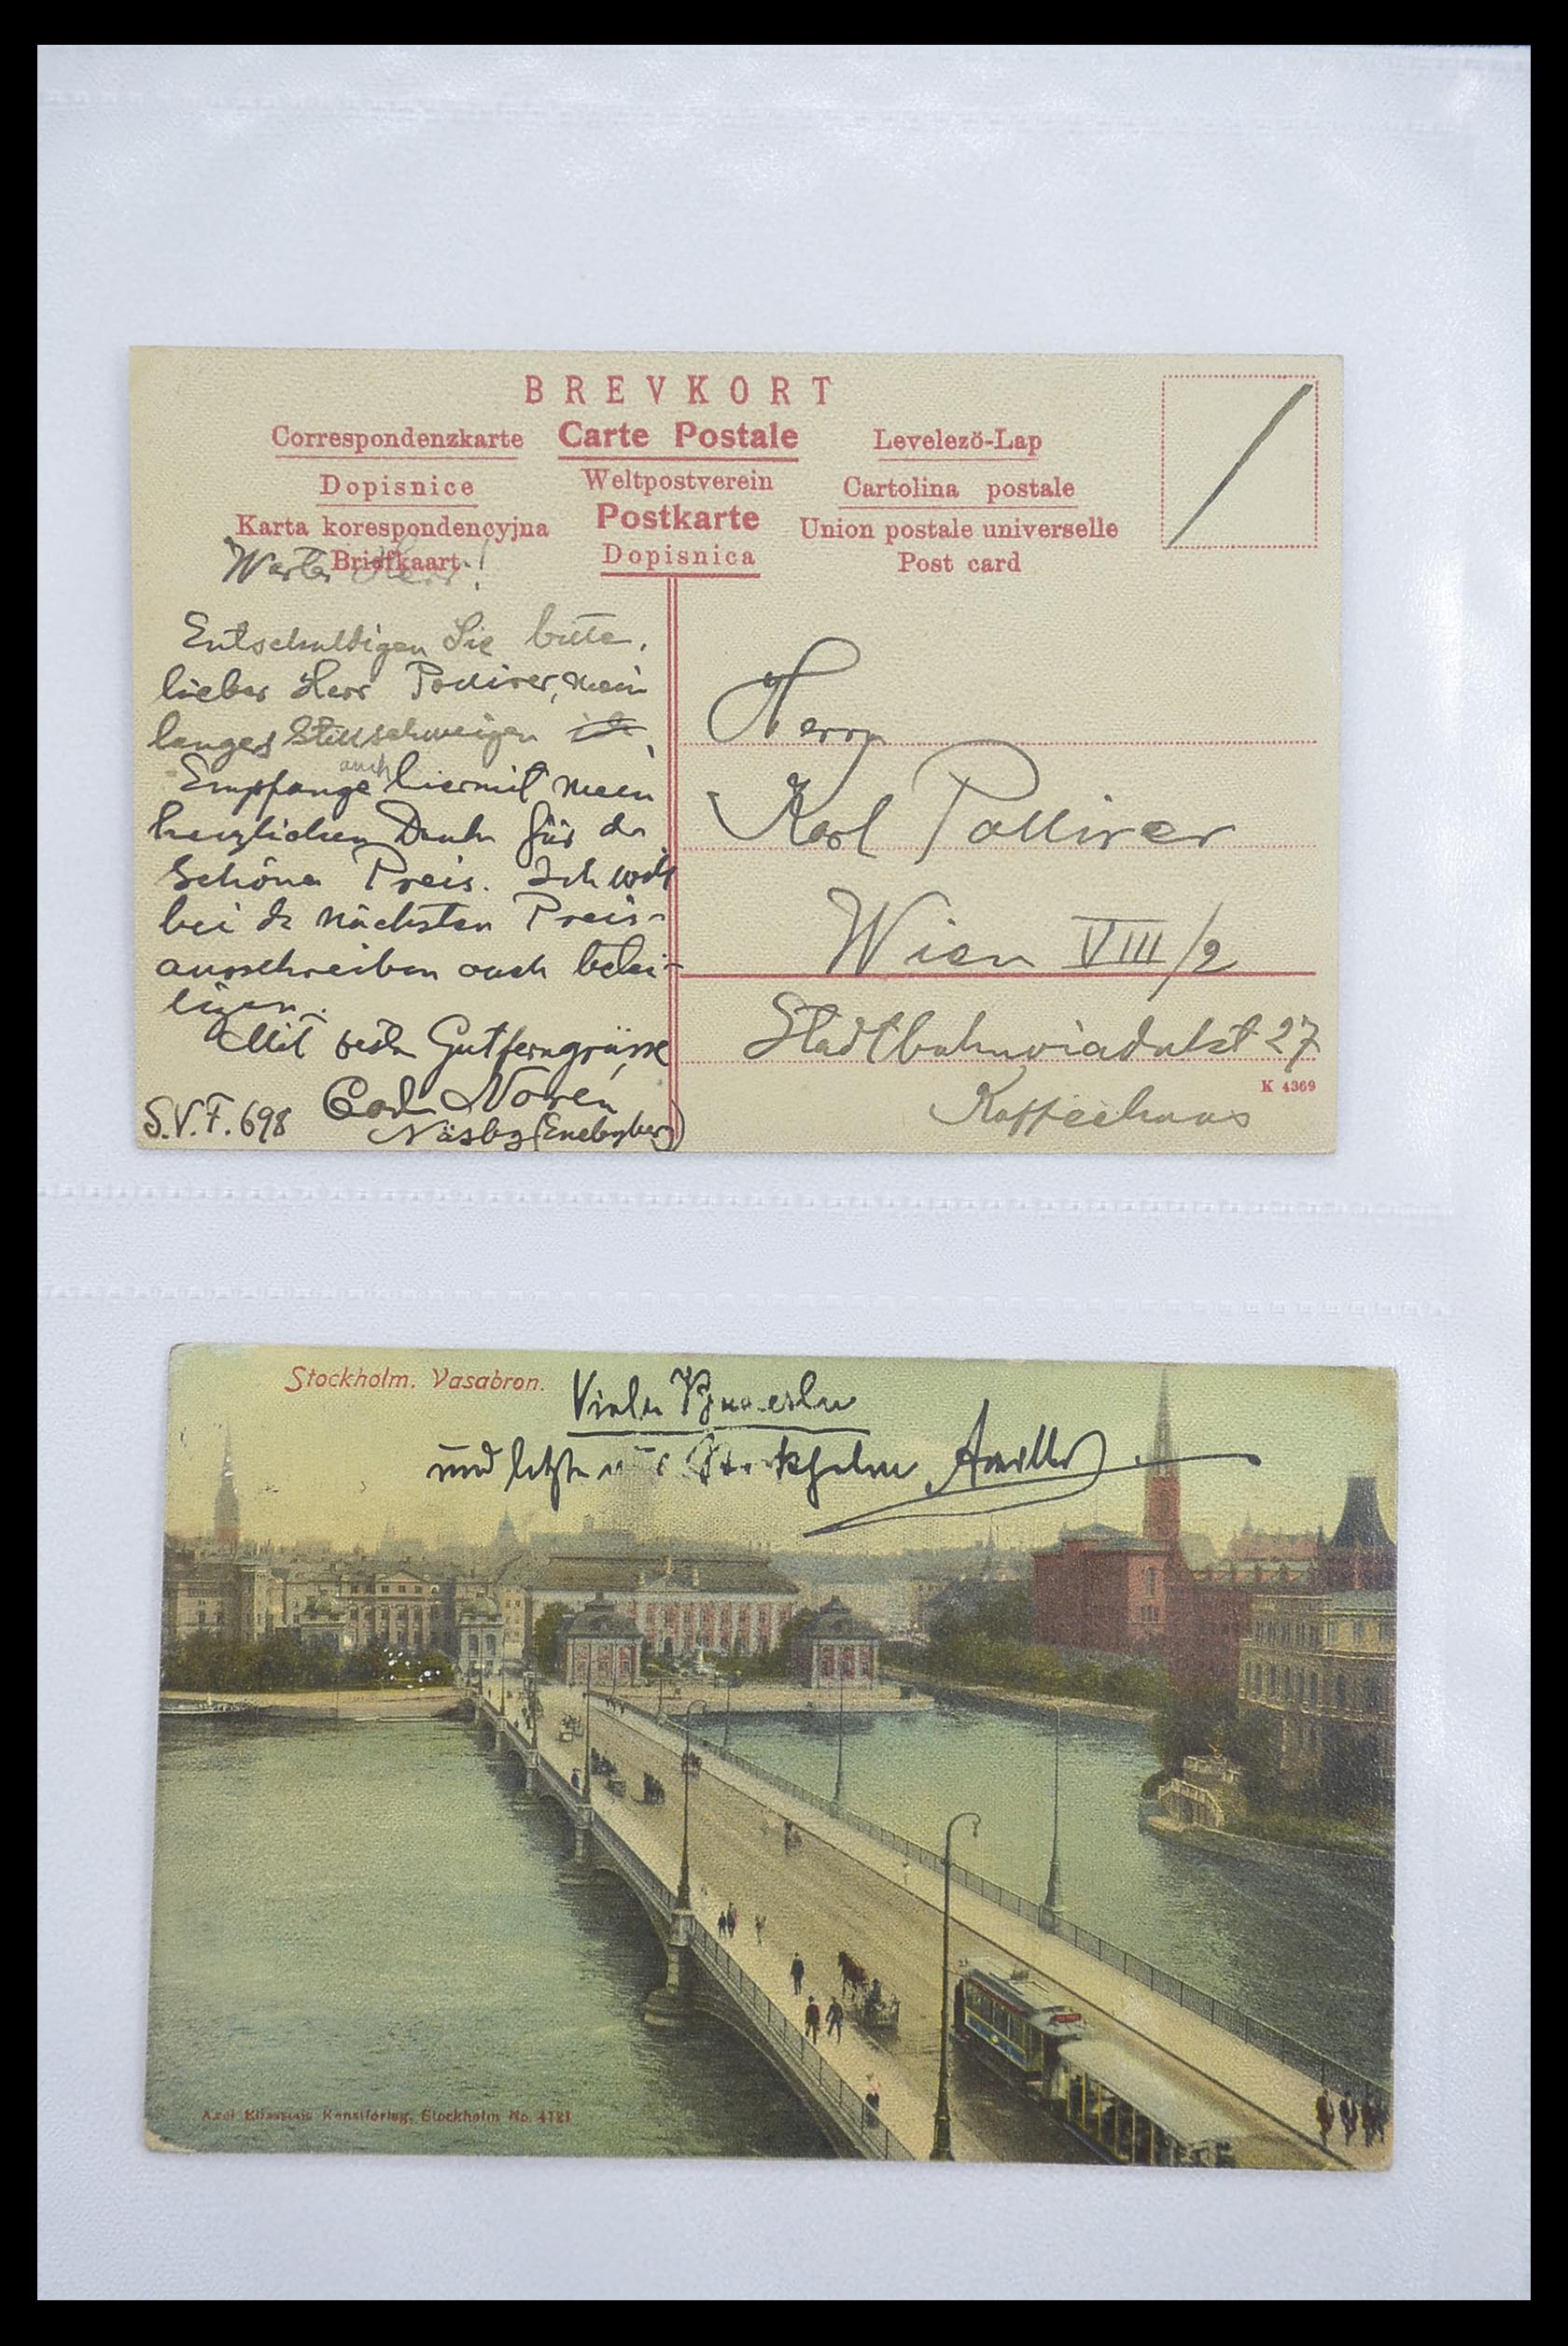 BREVKORT
Correspondenzkarte Carte Postale Levelezö-Lap
Dopisnice Weltpostverein Cartolina postale
Karta korespondencyjna Postkarte Union postale universelle
Briefkaart Dopisnica Post card
Werter Herr!
Entschuldigen Sie bitte,
lieber Herr Pollirer, mein
langes Stillschweigen
auch
Empfange hiermit mein
herzlichen Dank für de
schönen Preis. Ich will
bei de nächsten Preis-
ausschreiben auch betei-
ligen.
Mit besten Gutferngrüsse
Carl Norén
S.V.F. 698 Näsby (Enebyberg)
Herrn
Karl Pollirer
Wien VIII/2
Stadtbahnviadukt 27
K 4369
Kaffeehaus
Stockholm. Vasabron.
Viele
und letzte Stockholm
Axel Eliassons Konstförlag. Stockholm No. 4781